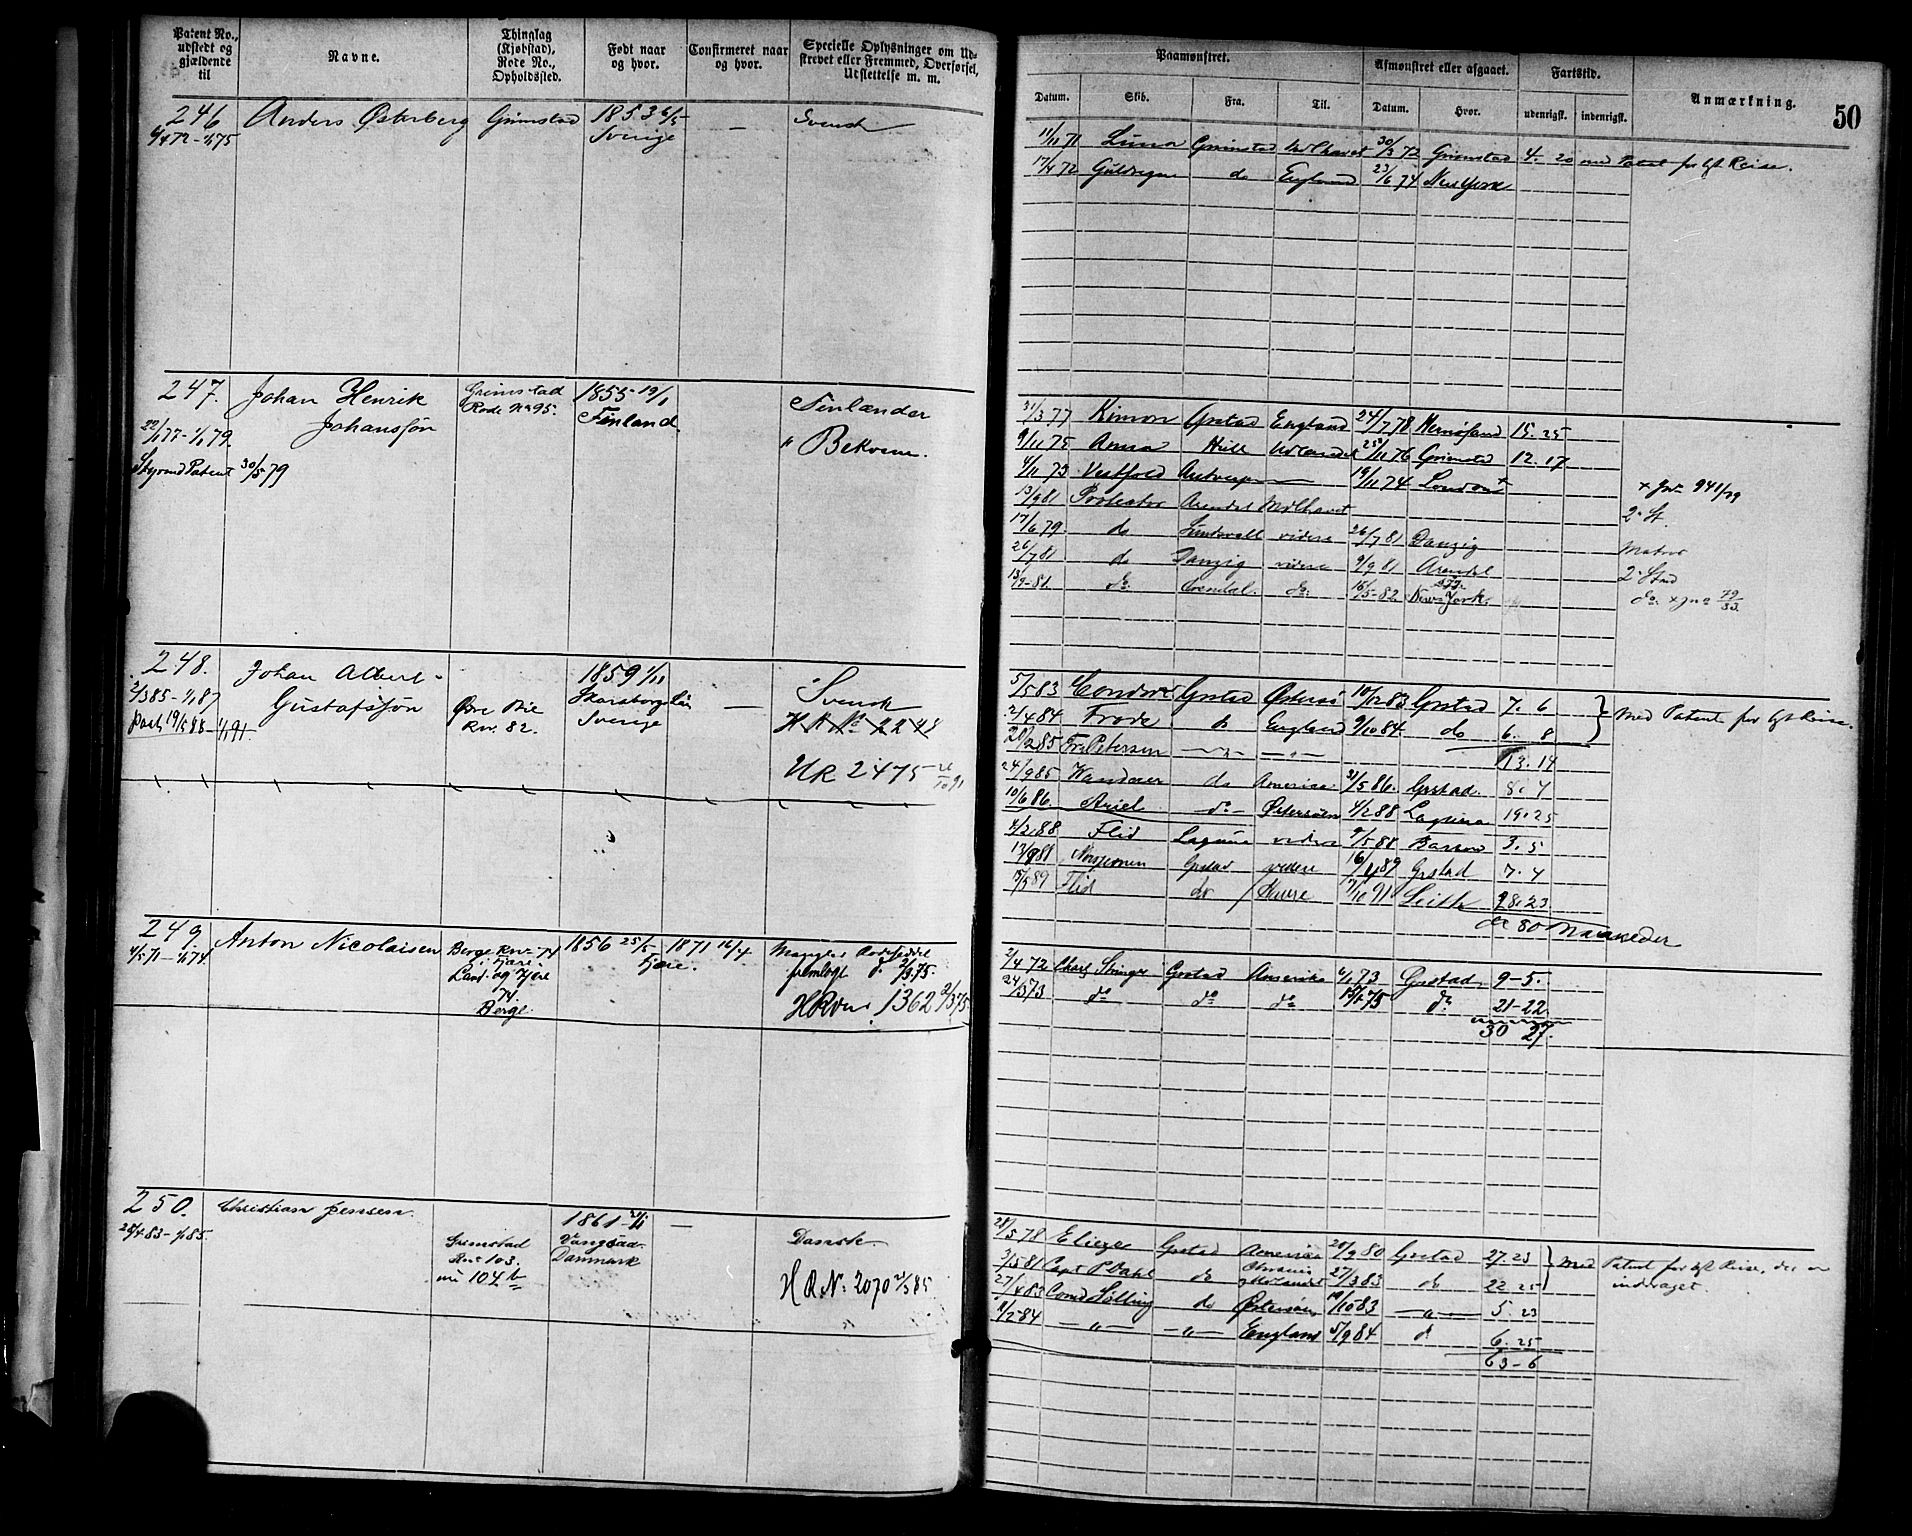 Patent No., udstedt og gjældende til
Navne.
Thinglag (Kjøbstad), Rode No., Opholdssted.
Født naar og hvor.
Confirmeret naar og hvor.
Specielle Oplysninger om Udskrevet eller Fremmed, Overførsel, Udslettelse m. m.
Paamønstret.
Datum.
Skib.
Fra.
Til.
Afmønstret eller afgaaet.
Datum.
Hvor.
Fartstid.
udenrigsk.
indenrigsk.
Anmærkning.
50
246 Anders Østerberg Grimstad 1853 6/5 — Svensk
Sverige
11/11 71 Luna Grimstad 30/3 72 Grimstad 4. 20 med Patent for sft Reise.
17/4 72 do England 23/6 74 New York
247. Johan Henrik Johanssøn
Grimstad Rode No 95.
1855 - 19/1 Finland.
Finlænder
" Bekvem.
Styrmd Patent 30/5 79
31/3 77 Kimon Grstad England 24/7 78 Hernøsand 15. 25
9/11 75 Anna Hull 25/11 76 Grimstad 12. 17
4/11 73 Vestfold Antwerpen — 19/11 74 London +
+ Jnr 941/79
13/9 81 Protector Arendal Middelhavet
2. St.
17/6 79. do Sundsvall videre 26/7 81 Danzig
Matros
26/7 81 do Danzig videre 9/9 81 Arendal
2. Stmd
13/9-81. do. Arendal. do. 16/5-82. New York.
do. + jno 79/83.
248. Johan Albert Gustafssøn
2/3 85 - 1/1 87
19/5 88 - 1/1 91.
Øvre Bie Rnr. 82.
1859 1/11 Skaraborgslän Sverige
—
Svensk
H R No 2248
UR 2475
5/5 83 Condor Grstad Østersø 10/12 83 Grstad 7. 6
} Med Patent for sft Reise.
2/4 84 Frode do England 9/10 84 do 6. 8
13. 14
20/2 85 Fru Petersen — " — — " —
24/9 85 Wanderer do Amerika 31/5 86. Grstad. 8. 7
10/6 86. Ariel do — Østersøen 4/2 88 Laguna 19. 25
4/2 88 Flid Laguna videre 9/5 88 Barrow 3. 5
13/8 88 Grstad videre 16/4 89 Grstad 7. 4
15/5 89 Flid do 17/10 91 Leith 28. 23.
80 Maaneder
249. Anton Nicolaisen
4/5 71 - 1/1 74
Berge Rnr. 74
Fjære
Land. og Fjære
74.
Berge.
1856 25/5
Fjære.
1871 16/4
HRno. 1362 2/3 75
2/4 72 Charl Stinger Grstad Amerika 4/1 73 Grstad 9-5.
24/3 73 do do do 14/1 75 do 21-22
30 27.
250. Christian Jensen.
28/4 83 - 1/1 85.
Grimstad Rnr 103.
nu 104 b
1861
Vangsaa
Danmark
—
Dansk.
H R No 2070 2/3 85
28/5 78 Eliezer Grstad Amerika 20/9 80 Grstad 27. 23
} Med Patent for sft Reise, der er inddraget.
3/5 81 Capt P. Dahl do 27/3 83 do 22 25
27/4 83 Cond Sølling do Østersøen 10/10 83 — " — 5. 23
11/2-84 — " — — " — England 5/9 84 do 6. 25
63-6